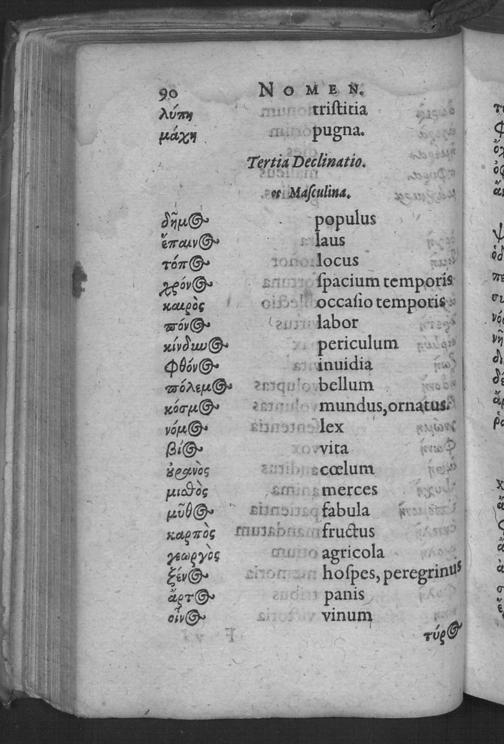 90 NOMEN.
λύπη tristitia
μάχη pugna.
Tertia Declinatio.
ος Masculina.
δῆμος populus
ἔπαινος laus
τόπος locus
χρόνος spacium temporis
καιρὸς occasio temporis
πόνος labor
κίνδυνος periculum
φθόνος inuidia
πόλεμος bellum
κόσμος mundus, ornatus.
νόμος lex
βίος vita
οὐρανὸς cœlum
μισθὸς merces
μῦθος fabula
καρπὸς fructus
γεωργὸς agricola
ξένος hospes, peregrinus
ἄρτος panis
οἶνος vinum
τύρος